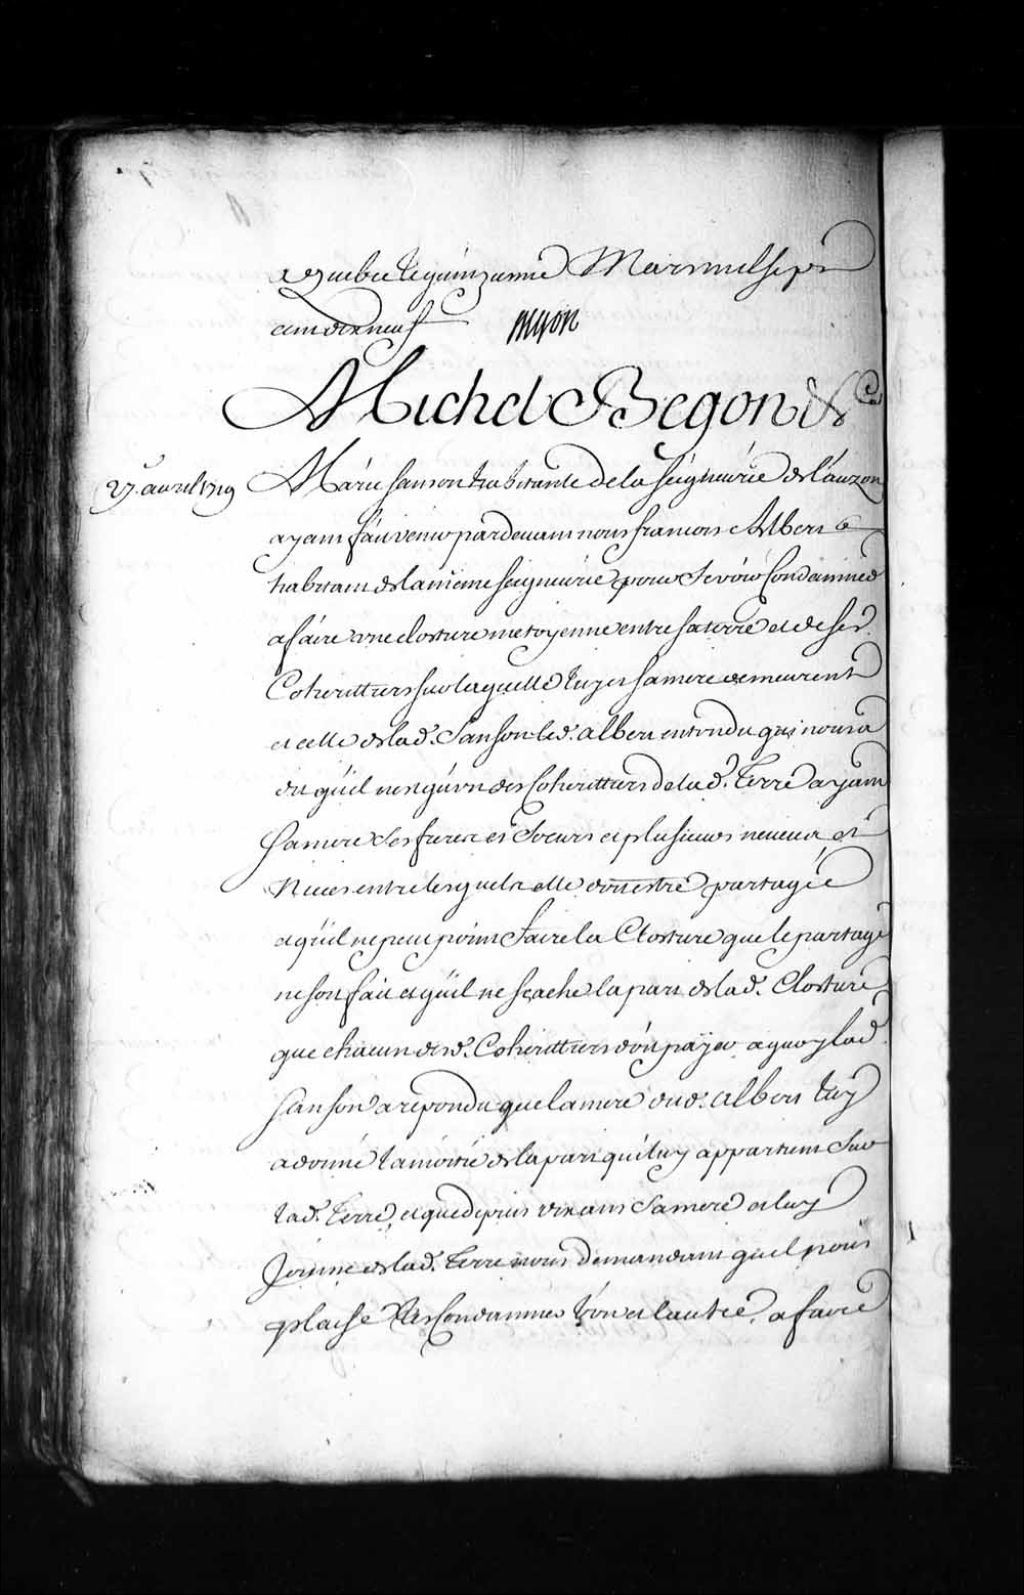 a Quebec le quinziesme Mars mil sept
cent dix neuf Begon
Michel Begon &ca
27. avril 1719
Marie Sanson habitante de la Seigneurie de Lauzon
ayant fait venir pardevant nous francois Albert
habitant de la meme Seigneurie pour se voir Condamner
a faire une closture metoyenne entre sa terre et de ses
Coheritiers sur laquelle luy et sa mere demeurent
et celle de lad. Sanson led. albert entendu qui nous a
dit qu'il nest qu'un des Coheritiers de lad. Terre ayant
sa mere ses freres et Soeurs et plusieurs neveux et
Nieces entre lesquels elle doit estre partagée
et qu'il ne peut point faire la Closture que le partage
ne soit fait et qu'il ne sçache la part de lad. Closture
que chacun desd. Coheritiers doit payer, a quoy lad.
Sanson a repondu que la mere dud. albert luy
a donné la moitié de la part qui luy appartient Sur
lad. Terre, et que depuis dix ans Sa mere et luy
Jouissent de lad. Terre nous demandant qu'il nous
plaise les Condamner l'un et lautre, a faire